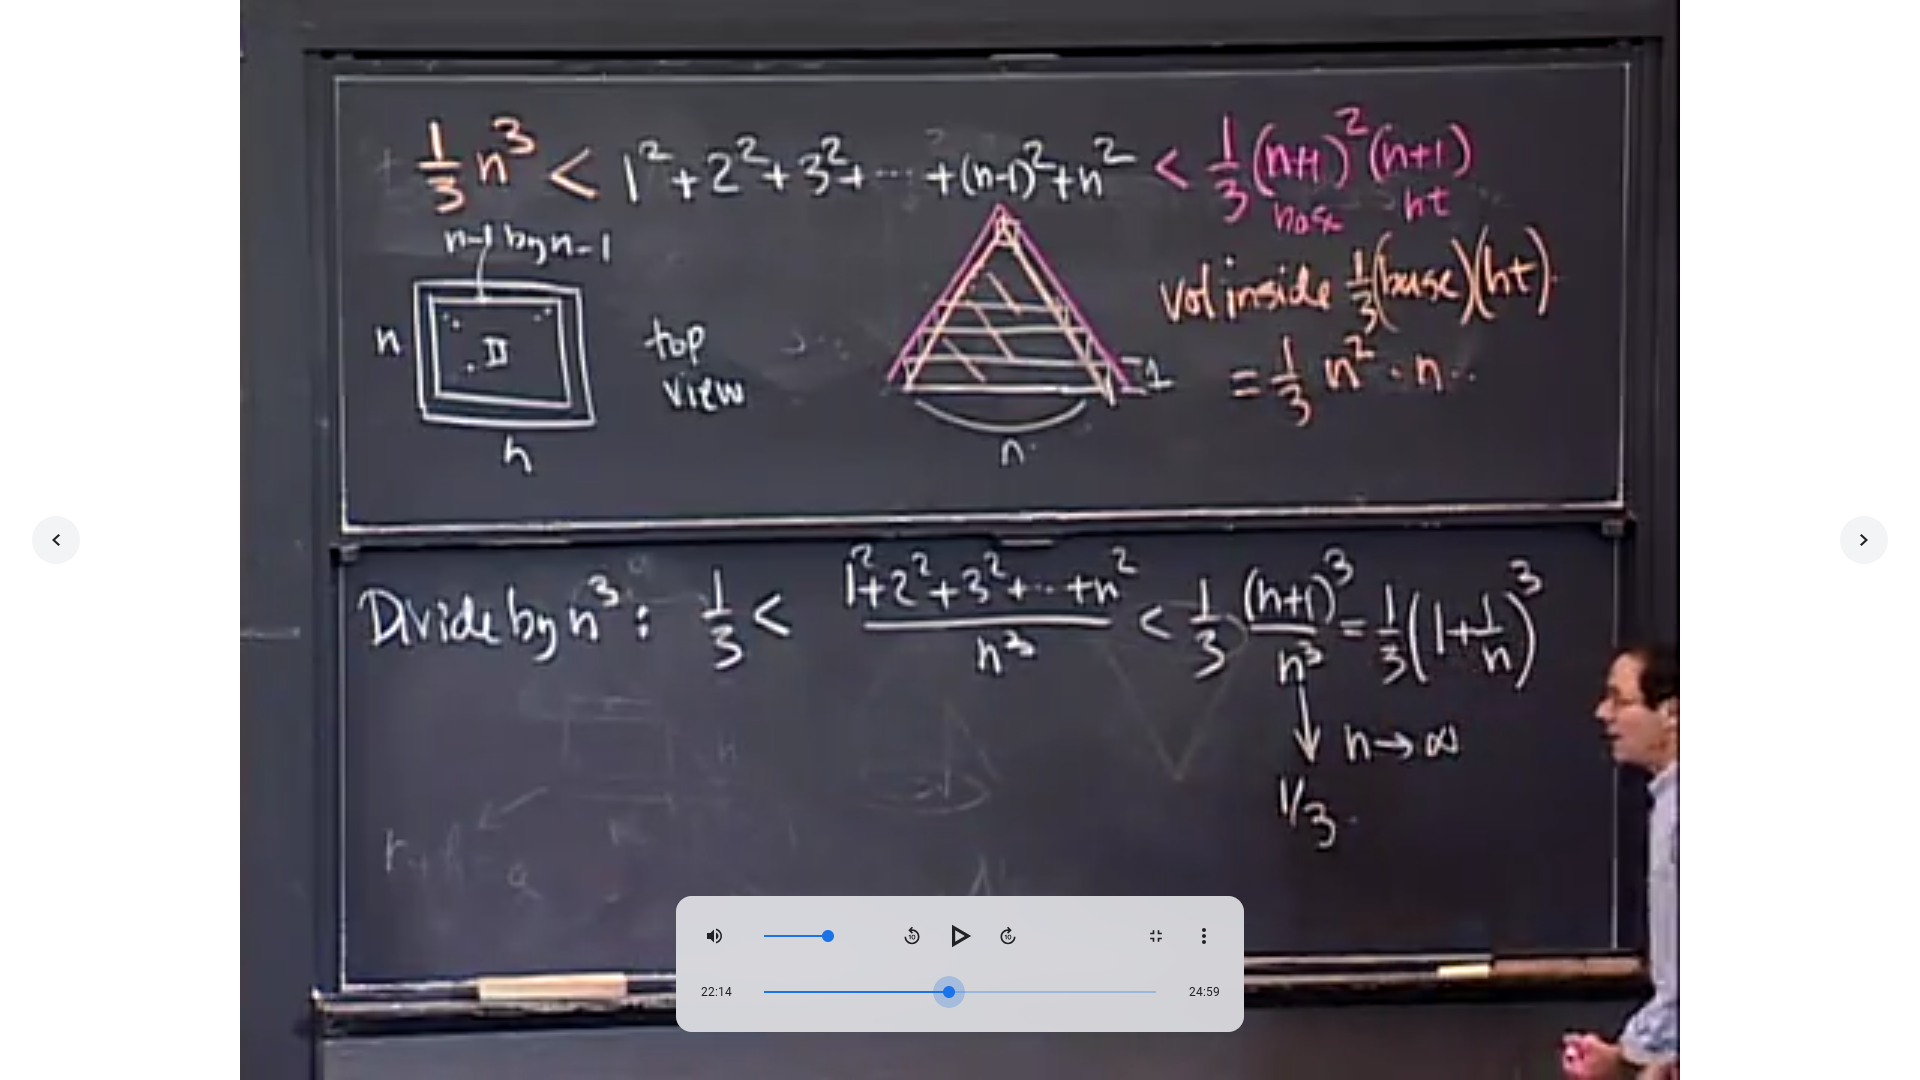 1/3 n³ < 1² + 2² + 3² + ⋯ + (n-1)² + n² < 1/3 (n+1)² (n+1)
base ht
n-1 by n-1
n
II
n
top
view
1
n
vol inside 1/3 (base)(ht)
= 1/3 n² · n
Divide by n³: 1/3 < (1² + 2² + 3² + ⋯ + n²)/n³ < 1/3 (n+1)³/n³ = 1/3 (1 + 1/n)³
↓ n → ∞
1/3
10 10
22:14 24:59